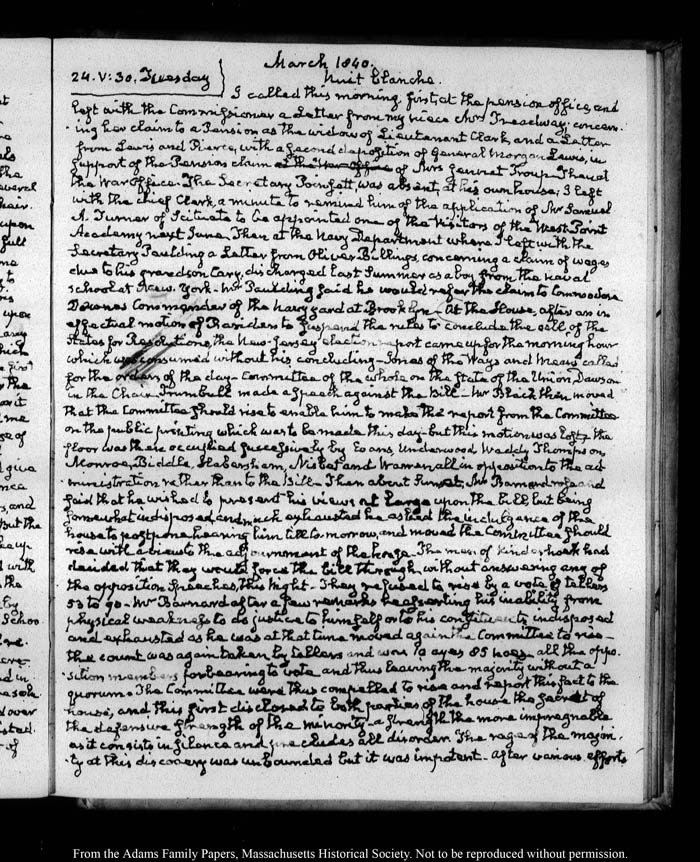 March 1840.
24. V:30. Tuesday } Nuit blanche.
I called this morning, first, at the pension office, and
left with the Commissioner a Letter from my niece Mrs Treadway, concern-
ing her claim to a Pension as the widow of Lieutenant Clark, and a Letter
from Lewis and Pierce, with a second deposition of General Morgan Lewis, in
support of the Pension claim at the War office of Mrs General Troup. Then at
the War office. The Secretary Poinsett was absent, at his own house; I left
with the chief Clerk, a minute to remind him of the application of Mr Samuel
A. Turner of Scituate to be appointed one of the Visitors of the West Point
Academy next June. Then at the Navy Department where I left with the
Secretary Paulding a Letter from Oliver Billings, concerning a claim of wages
due to his grandson Cary, discharged last Summer as a boy from the naval
school at New-York. Mr Paulding said he would refer the claim to Commodore
Downes Commander of the navy yard at Brooklyn. At the House, after an in-
effectual motion of Banidento suspend the rules to conclude the call of the
States for Resolutions, the New-Jersey election report came up for the morning hour
which was consumed without his concluding. Jones of the Ways and Means called
for the orders of the day. Committee of the whole on the State of the Union, Dawson
in the Chair. Trumbull made a speech against the Bill. Mr Black then moved
that the Committee should rise to enable him to make the report from the Committee
on the public printing which was to be made this day, but this motion was lost. the
floor was then occupied successively by Evans, Underwood Waddy Thompson
Monroe, Biddle, Habersham, Nisbet and Warren, all in opposition to the ad-
ministration rather than to the Bill. Then about Sunset, Mr Barnard rose and
said that he wished to present his views at large upon the bill, but being
somewhat indisposed, and much exhausted he asked the indulgence of the
house to postpone hearing him till to-morrow, and moved the Committee should
rise with a view to the adjournment of the house. The men of Kinderhook had
decided that they would force the bill through, without answering any of
the opposition speeches, this Night. They refused to rise by a vote of tellers
53 to 90. Mr Barnard after a few remarks reasserting his inability from
physical weakness to do justice to himself or to his constituents, indisposed
and exhausted as he was at that time moved again the Committee to rise.
the count was again taken by tellers and was 10 ayes 85 noes. all the oppo-
sition members forbearing to vote and thus leaving the majority without a
quorum. The Committee were thus compelled to rise and report this fact to the
house, and this first disclosed to both parties of the house the secret of
the defensive strength of the minority. a strength the more impregnable
as it consists in silence and precludes all disorder. The rage of the major-
ity at this discovery was unbounded but it was impotent. After various efforts
From the Adams Family Papers, Massachusetts Historical Society. Not to be reproduced without permission.